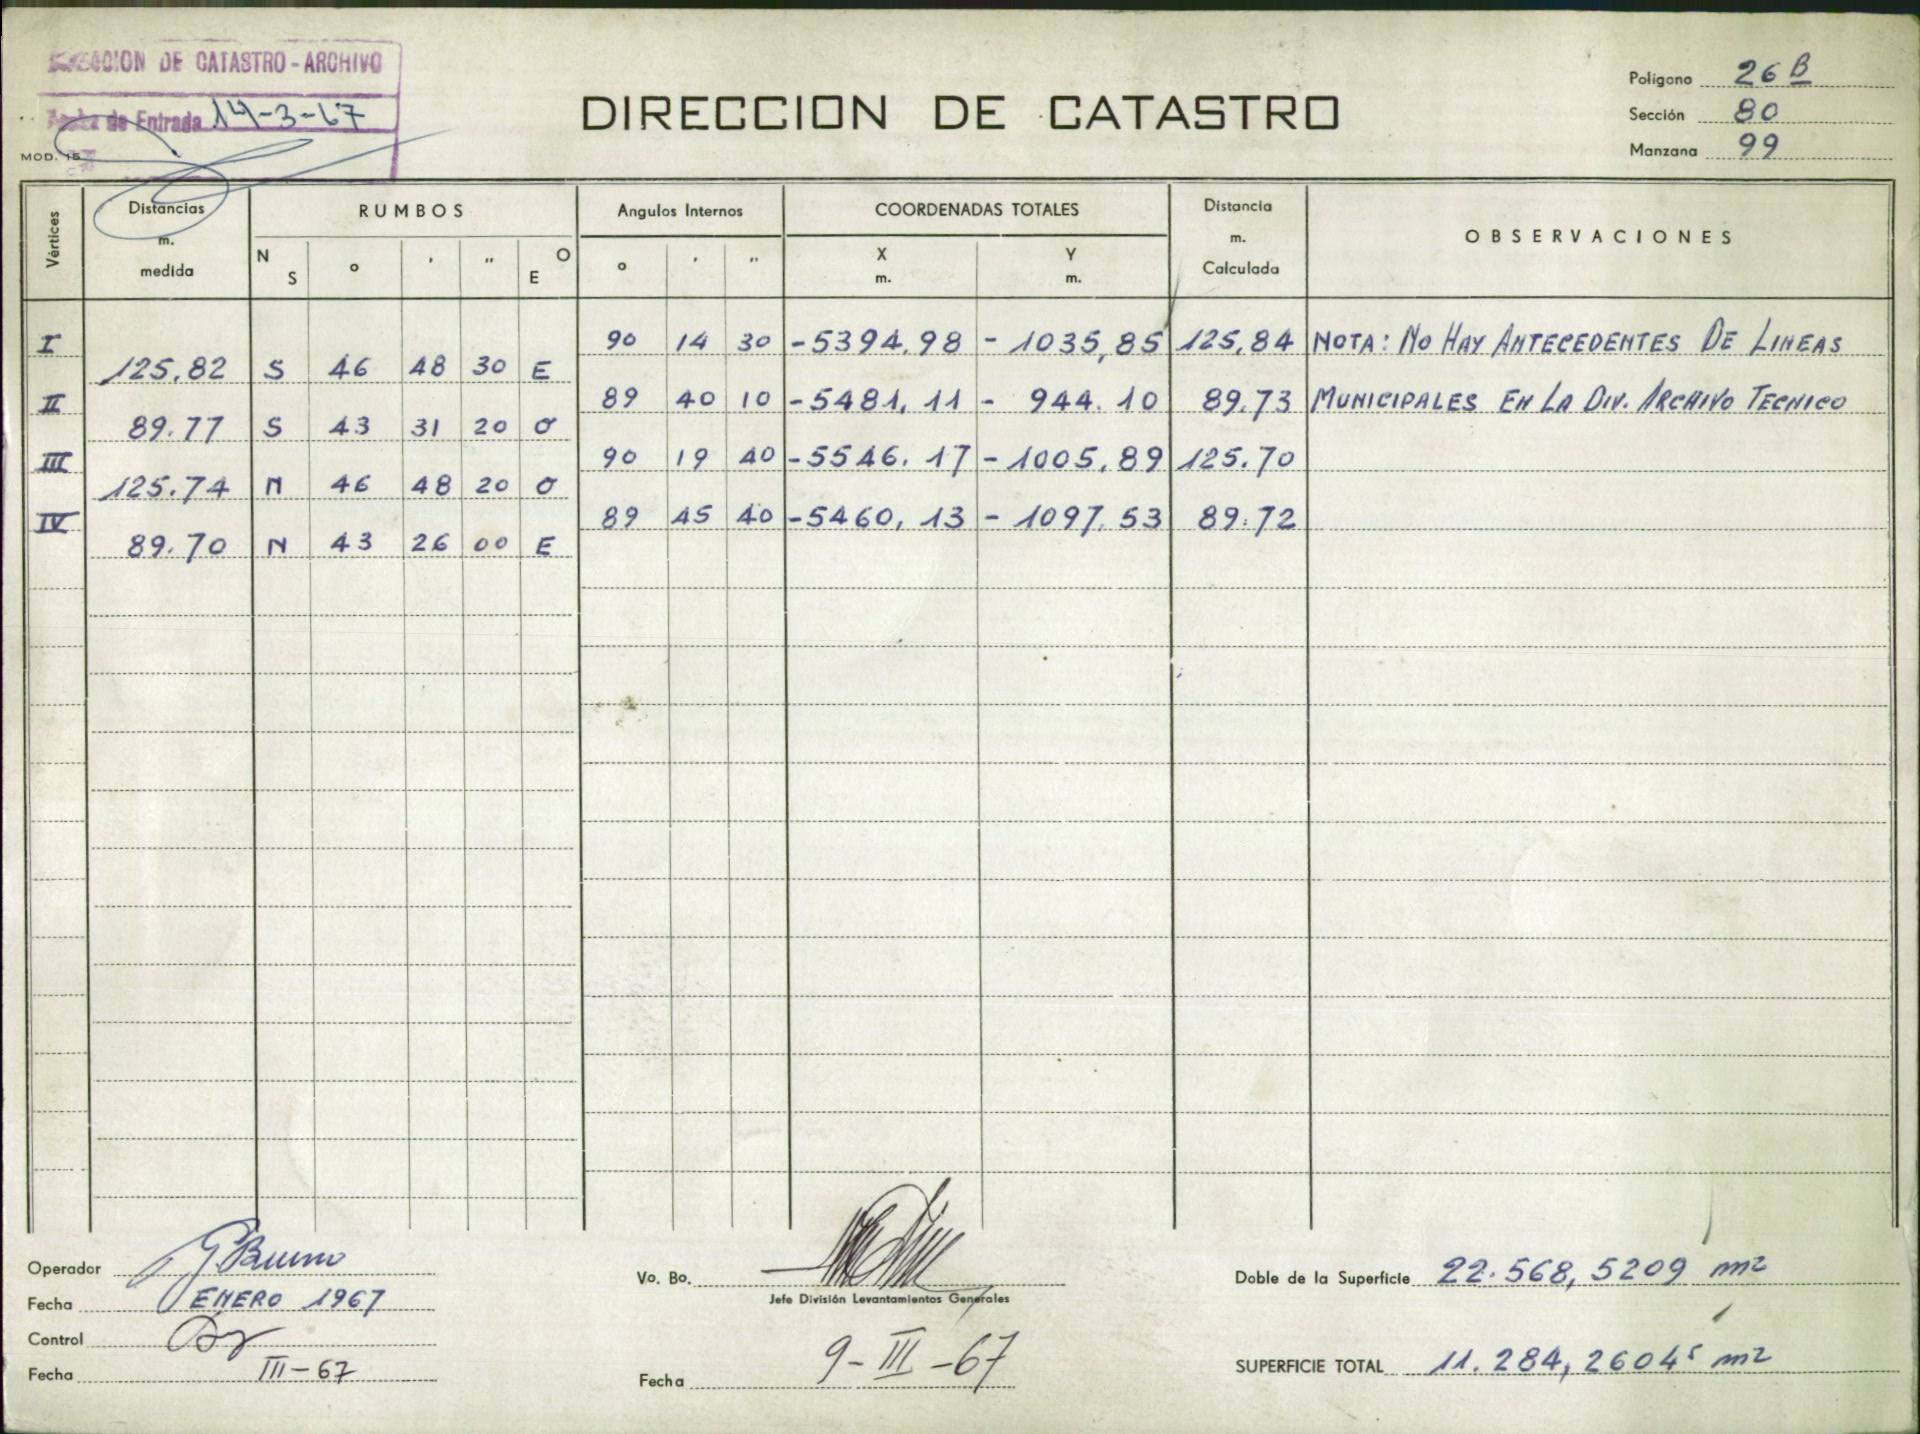 DIRECCION DE CATASTRO - ARCHIVO
Fecha de Entrada 14-3-67
MOD. 15
DIRECCION DE CATASTRO
Polígono 26 B
Sección 80
Manzana 99
Vértices
Distancias m. medida
RUMBOS
N S ° ' " O E
Angulos Internos
° ' "
COORDENADAS TOTALES
X m. Y m.
Distancia m. Calculada
OBSERVACIONES
I 90 14 30 -5394,98 - 1035,85 125,84 NOTA: NO HAY ANTECEDENTES DE LINEAS
125,82 S 46 48 30 E
II 89 40 10 -5481,11 - 944.10 89.73 MUNICIPALES EN LA DIV. ARCHIVO TECNICO
89.77 S 43 31 20 O
III 90 19 40 -5546.17 - 1005,89 125.70
125.74 N 46 48 20 O
IV 89 45 40 -5460,13 - 1097.53 89.72
89.70 N 43 26 00 E
Operador G. Bruno
Fecha ENERO 1967
Control
Fecha III-67
Vo. Bo.
Jefe División Levantamientos Generales
Fecha 9-III-67
Doble de la Superficie 22.568,5209 m2
SUPERFICIE TOTAL 11.284,26045 m2